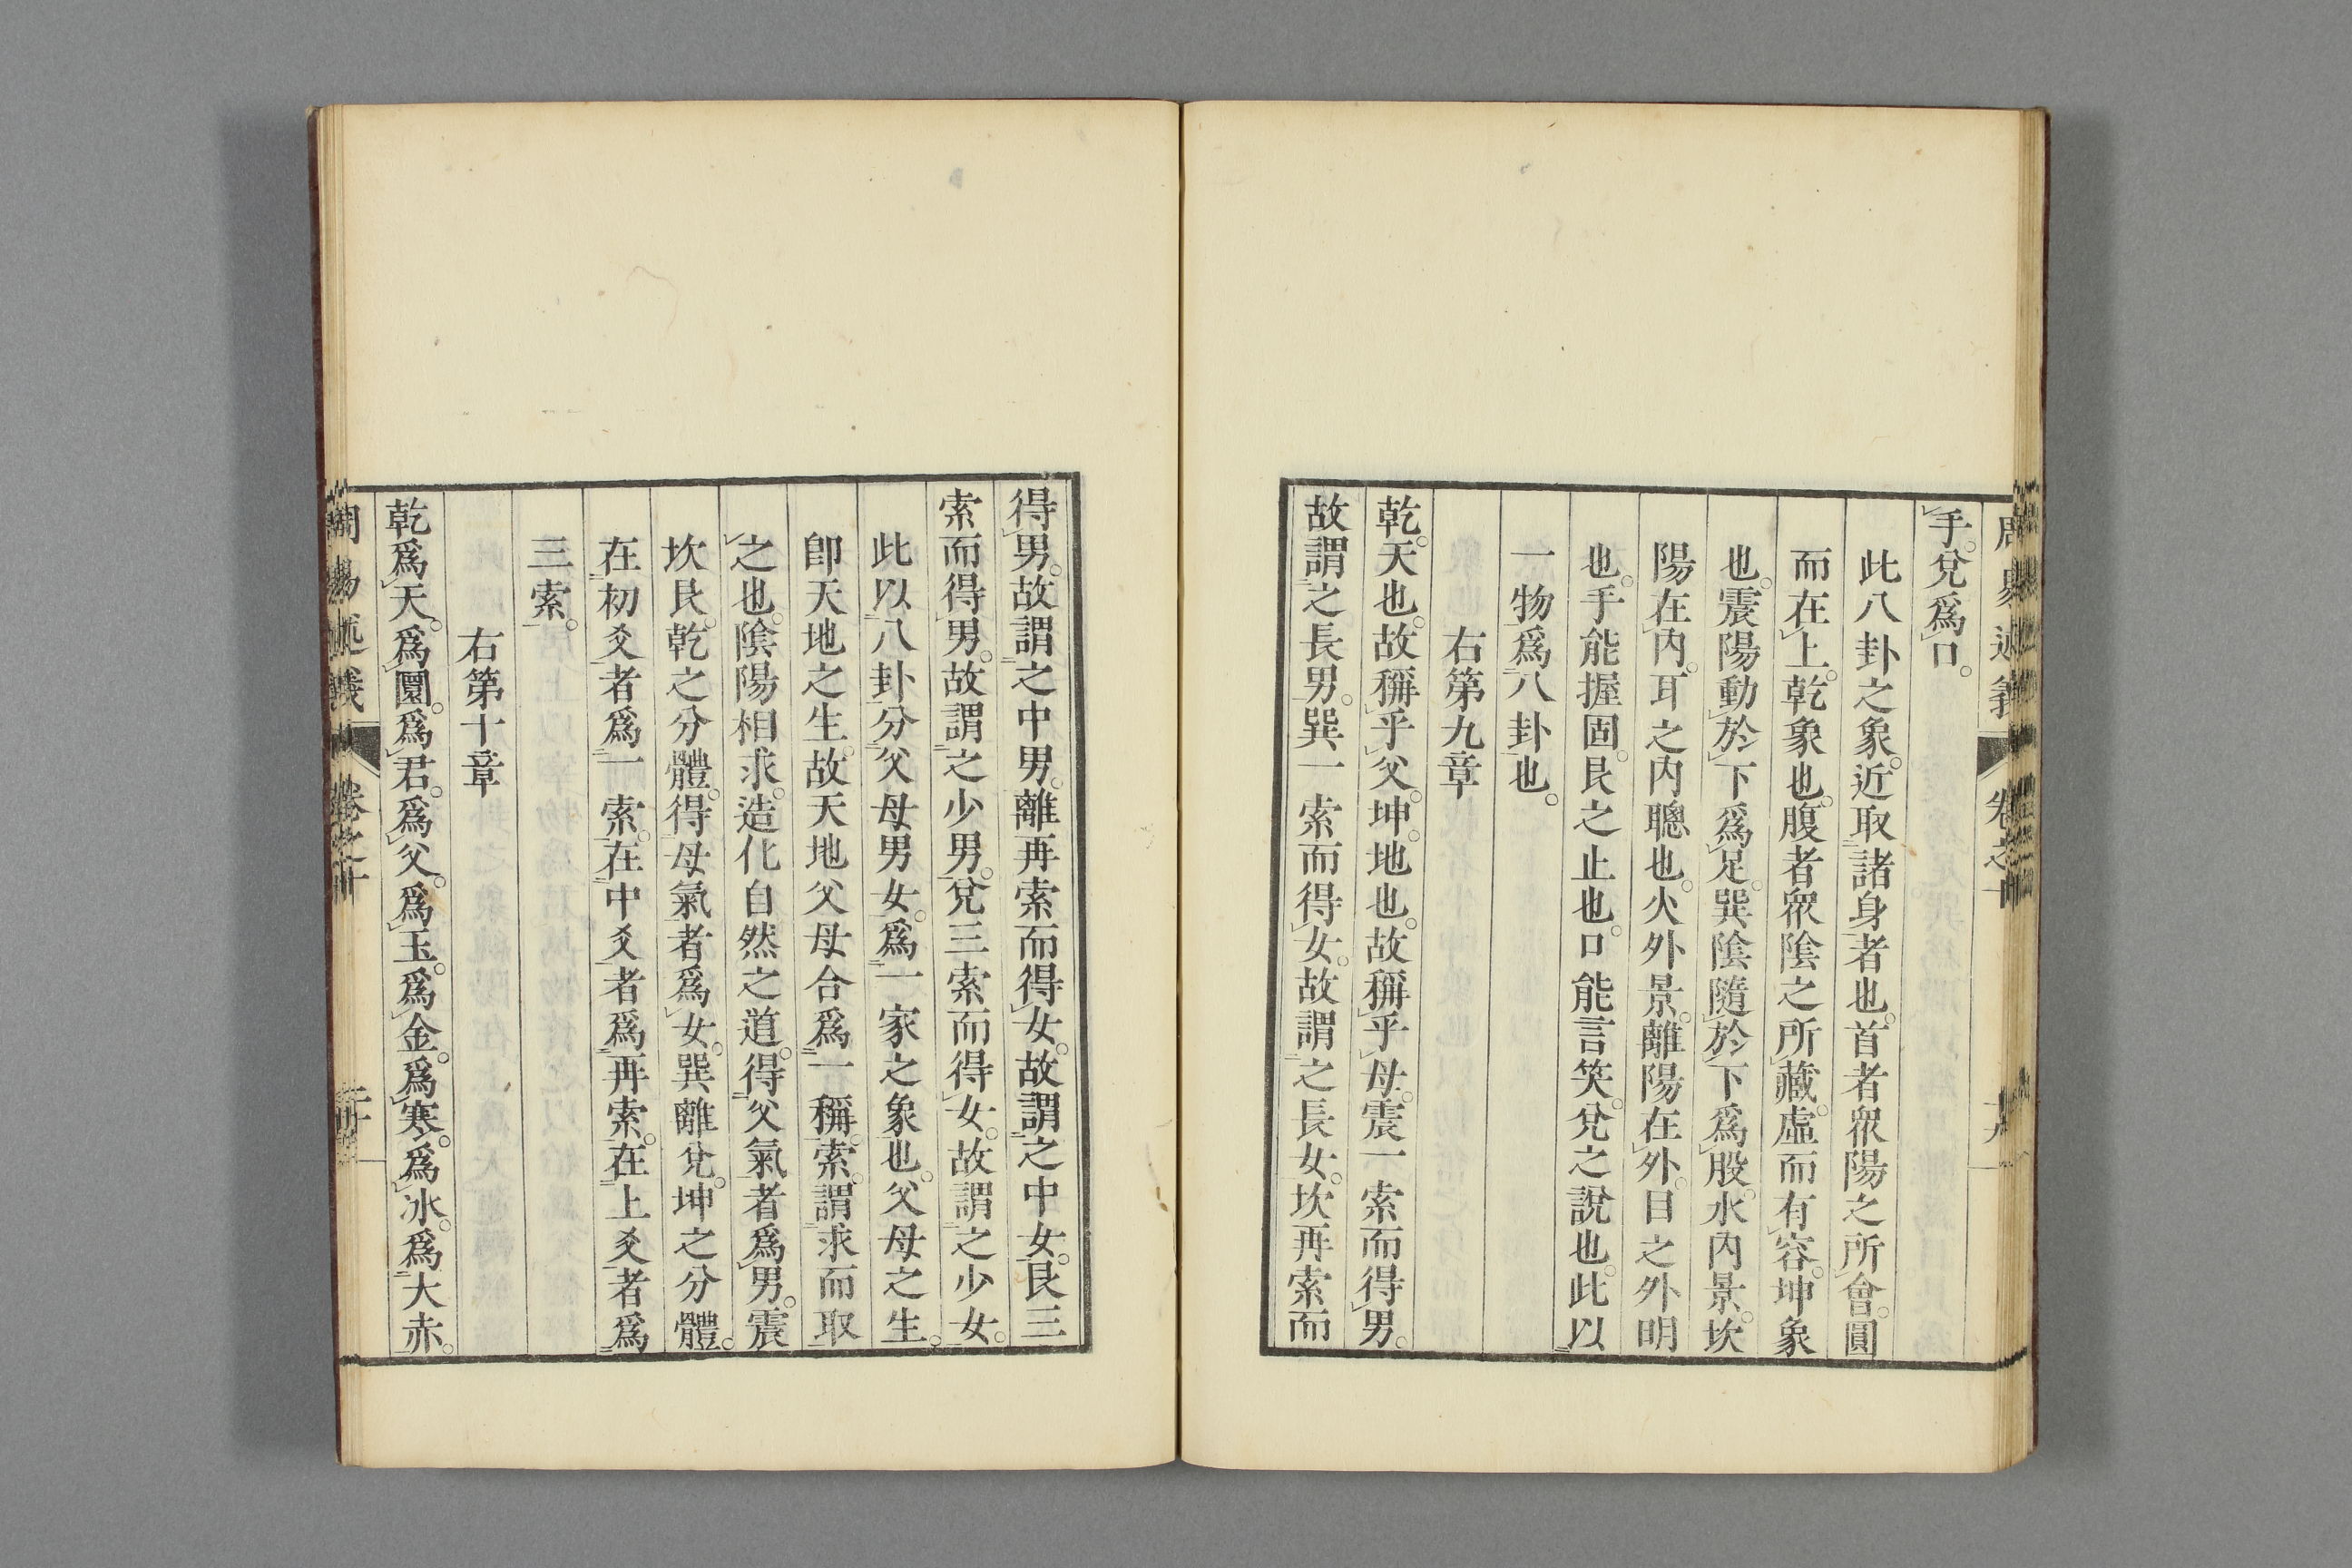 手。兌爲口。
此八卦之象。近取諸身者也。首者衆陽之所會。圓
而在上。乾象也。腹者衆陰之所藏。虛而有容。坤象
也。震陽動於下爲足。巽陰隨於下爲股。水內景。坎
陽在內。耳之內聰也。火外景。離陽在外。目之外明
也。手能握固。艮之止也。口能言笑。兌之說也。此以
一物爲八卦也。
右第九章
乾。天也。故稱乎父。坤。地也。故稱乎母。震一索而得男。
故謂之長男。巽一索而得女。故謂之長女。坎再索而
得男。故謂之中男。離再索而得女。故謂之中女。艮三
索而得男。故謂之少男。兌三索而得女。故謂之少女。
此以八卦分父母男女。爲一家之象也。父母之生。
卽天地之生。故天地父母合爲一稱。索。謂求而取
之也。陰陽相求。造化自然之道。得父氣者爲男。震
坎艮。乾之分體。得母氣者爲女。巽離兌。坤之分體。
在初爻者爲一索。在中爻者爲再索。在上爻者爲
三索。
右第十章
乾爲天。爲圜。爲君。爲父。爲玉。爲金。爲寒。爲冰。爲大赤。